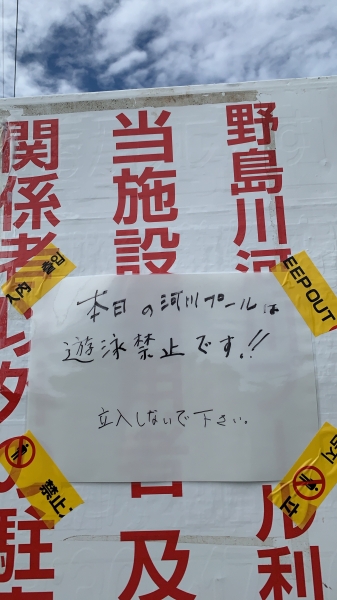 野島川河
ル利
当施設
及
関係者
の駐
EEP OUT
本日の河川プールは
遊泳禁止です!!
立入しないで下さい。
禁止
立